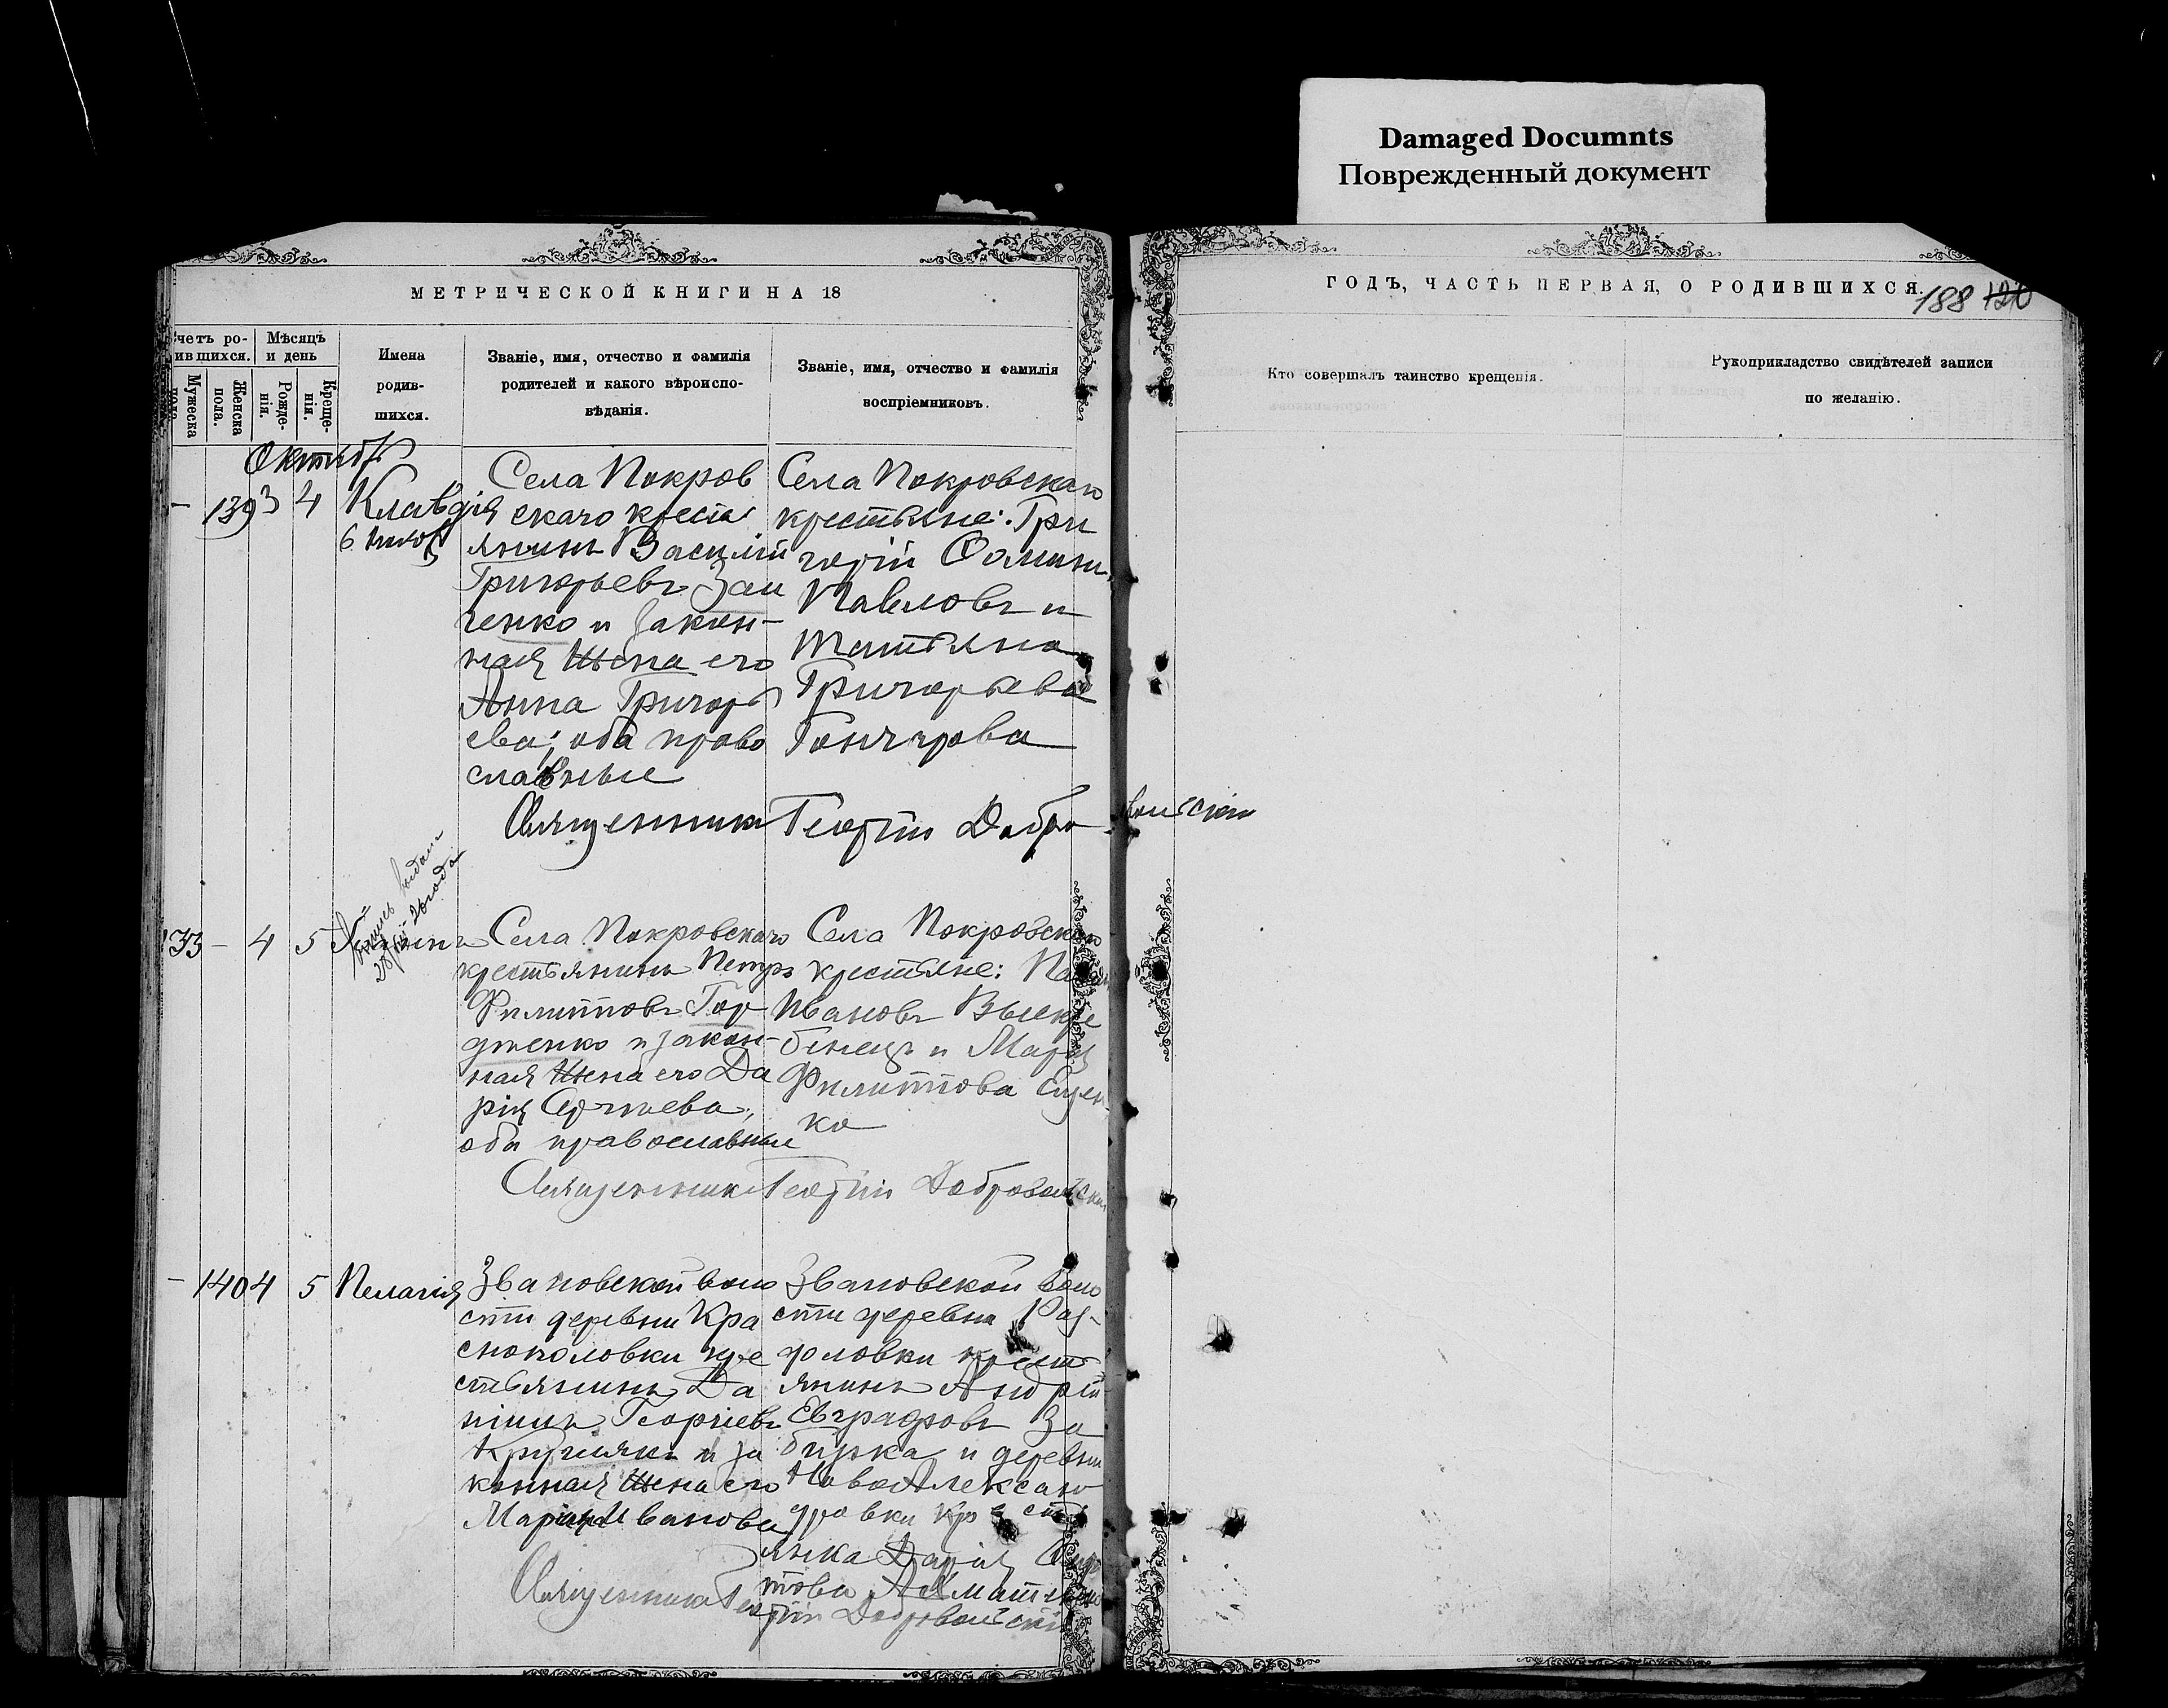 Damaged Documnts
Поврежденный документ
МЕТРИЧЕСКОЙ КНИГИ НА 18
ГОДЪ, ЧАСТЬ ПЕРВАЯ, О РОДИВШИХСЯ.
188 120
Счетъ ро-
дившихся.
Мужеска
пола.
Женска
пола.
Мѣсяцъ
и день
Рожде-
нія.
Креще-
нія.
Имена
родив-
шихся.
Званіе, имя, отчество и фамилія
родителей и какого вѣроиспо-
вѣданія.
Званіе, имя, отчество и фамилія
воспріемниковъ.
Кто совершалъ таинство крещенія.
Рукоприкладство свидѣтелей записи
по желанію.
Октябрь
- 139 3 4
Клавдія
Села Покров
скаго крестья
янинъ Василій
Григорьевъ Заи
ченко и закон-
ная жена его
Анна Григорь
ева; оба право
славные
Села Покровскаго
крестьяне: Гри
горій
Павловъ и
Татьяна
Григорьева
Гончарова
Священникъ Георгій Добровольскій
133 - 4 5
Села Покровскаго
крестьянинъ Петръ
Филипповъ Гор
диенко и закон-
ная жена его Да
рія Сергиева,
оба православные
Села Покровскаго
крестьяне:
Ивановъ
и Марія
Филиппова
ко
Священникъ Георгій Добровольскій
- 140 4 5 Пелагія
Звановской воло
сти деревни Кра
снополовки кре
стьянинъ Да
ніилъ Георгіевъ
Кругликъ и за
конная жена его
Марія Иванова
Звановской воло
сти деревни Раз-
доловки крест
янинъ Андрій
Евграфовъ За
бирка и деревни
НовоАлексан
дровки крест
янка Дарія
Священникъ Георгій Добровольскій